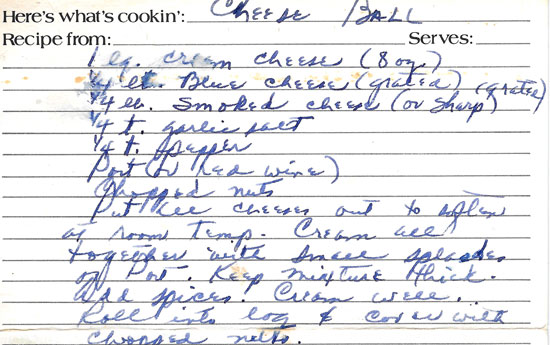 Here's what's cookin': Cheese Ball
Recipe from: Serves:
1 lg. cream cheese (8 oz)
1/4 lb. Blue cheese (grated)
1/4 lb. Smoked cheese (or sharp) (grated)
1/4 t. garlic salt
1/4 t. pepper
Port (or red wine)
Chopped nuts
Put all cheeses out to soften
at room temp. Cream all
together with small splashes
of Port. Keep mixture thick.
Add spices. Cream well.
Roll into log & cover with
chopped nuts.